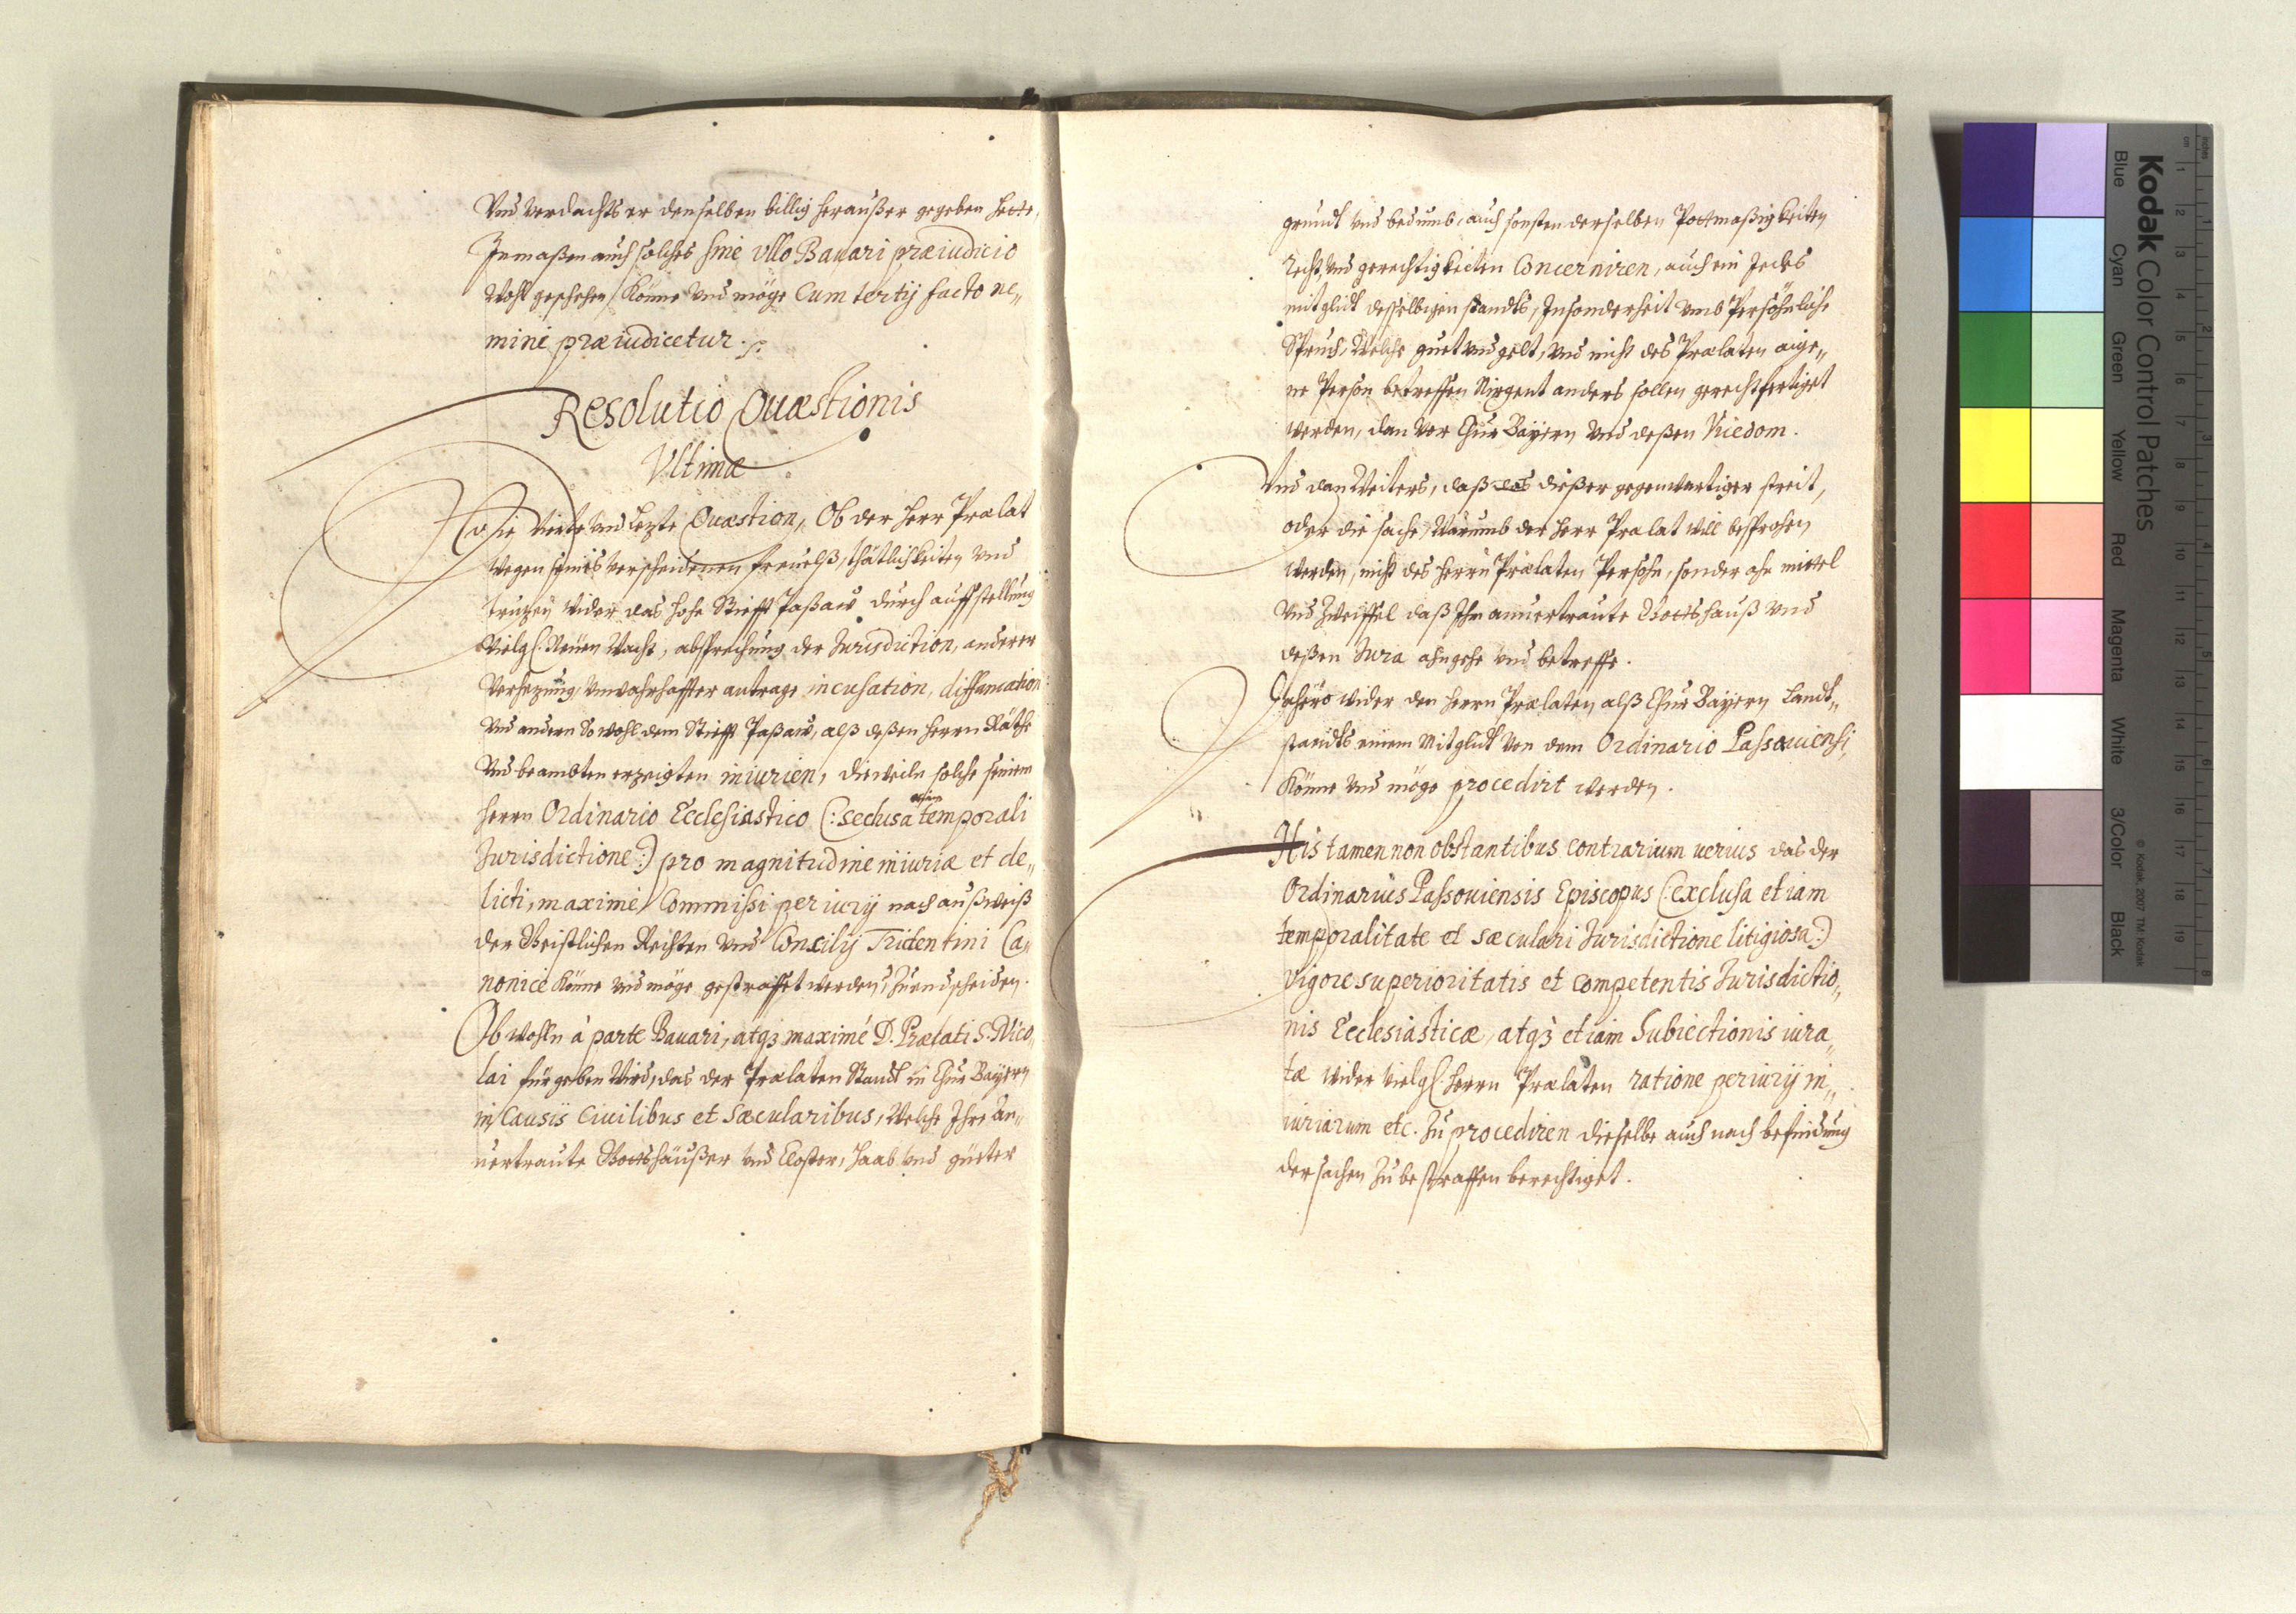 Vnd verdachts er denselben billig heraußer gegeben hette,
Inmaßen auch solches sine vllo Bauari præiudicio
Wohl geschehen Könne Vnd möge Cum tertij facto ne„
mini præiudicetur.
Resolutio Quæstionis
Vltimæ
Die Vierte Vnd Lezte Quæstion, Ob der Herr Prælat
wegen seines verscheidenen freuelß, thätlichkeiten Vnd
truzen wider das hohe Stifft Paßaw durch auffstellung
Vielg(. Neüen Wacht, absprechung der Jurisdiction, anderer
Versezung Vnwahrhaffter antrage incusation, diffamation
Vnd andern So wohl dem Stifft Paßaw, alß deßen Herrn Räthe
Vnd beambten erzeigten iniurien, dieweiln solche seinem
Herrn Ordinario Ecclesiastico (: seclusa etiam temporali
Jurisdictione:) pro magnitudine iniuriæ et de„
licti, maximé Commissi periurij nach außweiß
der Geistlichen Rechten Vnd Concilij Tridentini Ca„
nonicé Könne Vnd möge gestraffet werden, Zuendscheiden.
Ob wohln à parte Bauari, atqz maximé D. Prælati S. Nico„
lai fürgeben Wird, das der Prælaten Standt in Chur Bayern
in Causis Ciuilibus et Sæcularibus, Welche Ihre An„
uertraute Gottshäußer Vnd Closter, Haab Vnd güeter
grundt Vnd bedumb, auch sonsten derselben Pottmäßigkeiten
Recht, Vnd gerechtigkeiten Concerniren, auch ein Jedes
mitglidt desselbigen standts, Insonderheit Vmb Persöhnliche
Spruch, Welche guet Vnd gelt, Vnd nicht des Prælaten aige„
ne Person betreffen Nirgent anders sollen gerechtfertiget
werden, dan Vor Chur Bayern Vnd deßen Vicedom.
Vnd dan Weiters, daß das dießer gegenwertiger streit,
oder die sache, Warumb der Herr Prælat will besprochen
werden, nicht des Herrn Prælaten Persohn, sonder ohn mittel
Vnd Zweiffel daß Ihm anuertraute Gottshauß Vnd
deßen Jura ahngehe Vnd betreffe.
Dahero wider den Herrn Prælaten alß Chur Bayern Landt„
standts einem Mitglidt Von dem Ordinario Passauiensi,
Könne Vnd möge procedirt werden.
His tamen non obstantibus contrarium uerius das der
Ordinarius Passouiensis Episcopus (: exclusa etiam
temporalitate et sæculari Jurisdictione litigiosa:)
Vigore superioritatis et competentis Jurisdictio„
nis Ecclesiasticæ, atqz etiam Subiectionis iura„
tæ wider Vielg(. Herrn Prælaten ratione periurij in„
iuriarum etc. Zu procediren dieselbe auch nach befindung
der sachen Zubestraffen berechtiget.
Kodak Color Control Patches
Blue
Cyan
Green
Yellow
Red
Magenta
White
3/Color
Black
© Kodak, 2007 TM: Kodak